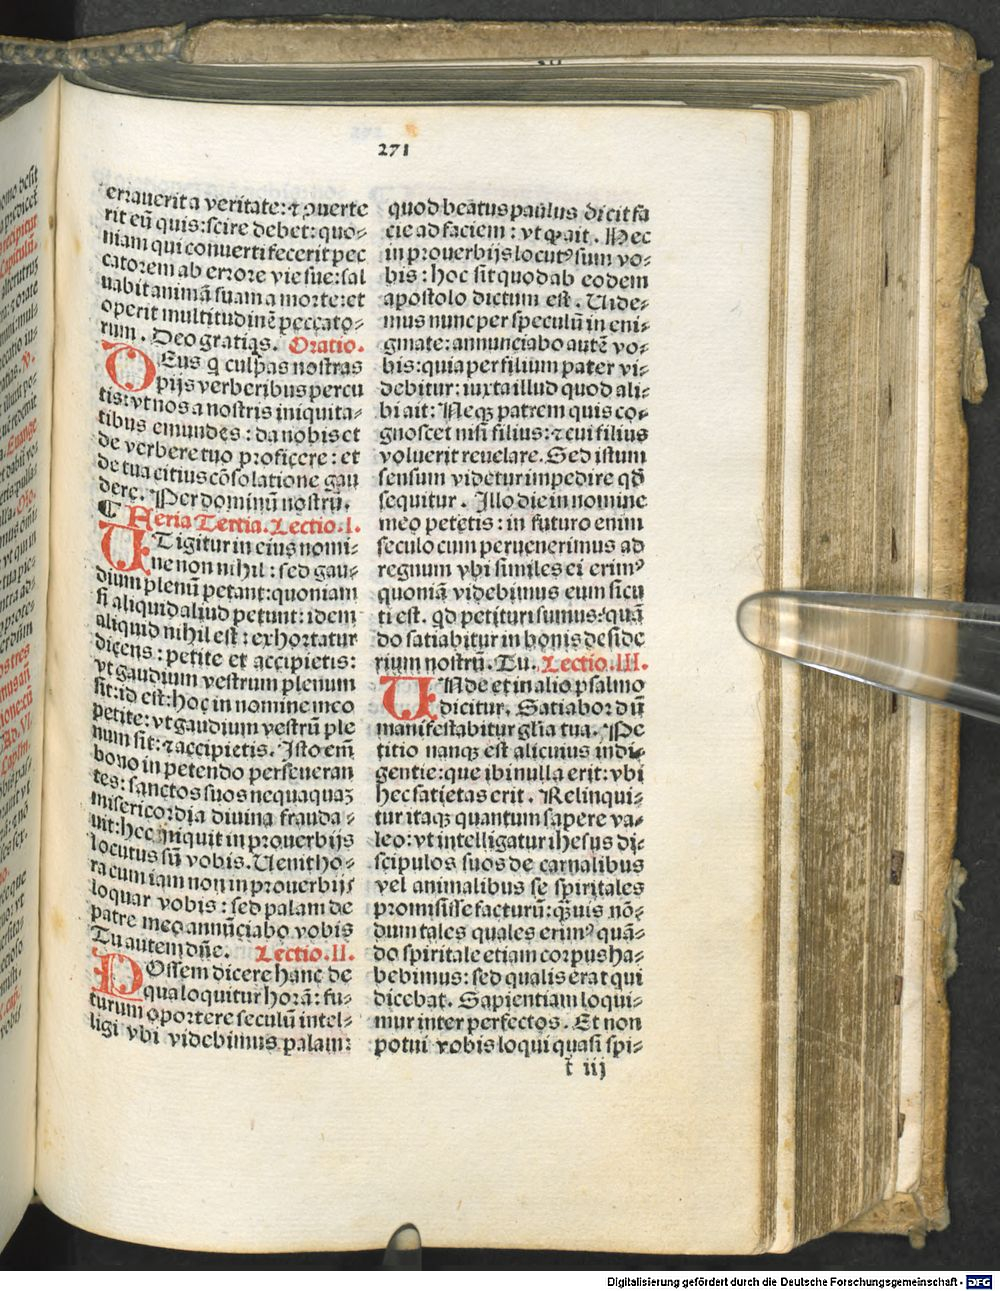 271
errauerit a veritate: ⁊ ꝯuerte
rit eū quis: scire debet: quo⸗
niam qui conuerti fecerit pec
catorem ab errore vie sue: sal
uabit animā suam a morte: et
operit multitudinē peccato⸗
rum. Deo gratias. Oratio.
DEus q̄ culpas nostras
pijs verberibus percu
tis: vt nos a nostris iniquita⸗
tibus emundes: da nobis et
de verbere tuo proficere: et
de tua citius cōsolatione gau
dere. Per dominū nostrū.
¶ Feria Tertia. Lectio. I.
UT igitur in eius nomi⸗
ne non nihil: sed gau⸗
dium plenū petant: quoniam
si aliquid aliud petunt: idem
aliquid nihil est: exhortatur
dicens: petite et accipietis:
vt gaudium vestrum plenum
sit: id est: hoc in nomine meo
petite: vt gaudium vestrū ple
num sit: ⁊ accipietis. Isto em̄
bono in petendo perseueran
tes: sanctos suos nequaquaꝫ
misericordia diuina frauda⸗
uit: hec inquit in prouerbijs
locutus sū vobis. Uenit ho⸗
ra cum iam non in prouerbijs
loquar vobis: sed palam de
patre meo annūciabo vobis
Tu autem dn̄e. Lectio. II.
POssem dicere hanc de
qua loquitur horā: fu⸗
turum oportere seculū intel⸗
ligi vbi videbimus palam:
quod beatus paulus dicit fa
cie ad faciem: vt ꝙ ait. Hec
in prouerbijs locutꝰ sum vo⸗
bis: hoc sit quod ab eodem
apostolo dictum est. Uide⸗
mus nunc per speculū in eni⸗
gmate: annunciabo autē vo⸗
bis: quia per filium pater vi⸗
debitur: iuxta illud quod ali⸗
bi ait: Neqꝫ patrem quis co⸗
gnoscet nisi filius: ⁊ cui filius
voluerit reuelare. Sed istum
sensum videtur impedire qđ
sequitur. Illo die in nomine
meo petetis: in futuro enim
seculo cum peruenerimus ad
regnum vbi similes ei erimꝰ
quoniā videbimus eum sicu
ti est. qđ petituri sumus: quā
do satiabitur in bonis deside
rium nostrū. Tu. Lectio. III.
UNde et in alio psalmo
dicitur. Satiabor dū
manifestabitur glīa tua. Pe
titio nanqꝫ est alicuius indi⸗
gentie: que ibi nulla erit: vbi
hec satietas erit. Relinqui⸗
tur itaqꝫ quantum sapere va⸗
leo: vt intelligatur ihesus di⸗
scipulos suos de carnalibus
vel animalibus se spiritales
promisisse facturū: q̄uis nō⸗
dum tales quales erimꝰ quā⸗
do spiritale etiam corpus ha⸗
bebimus: sed qualis erat qui
dicebat. Sapientiam loqui⸗
mur inter perfectos. Et non
potui vobis loqui quasi spi⸗
t iij
Digitalisierung gefördert durch die Deutsche Forschungsgemeinschaft - DFG